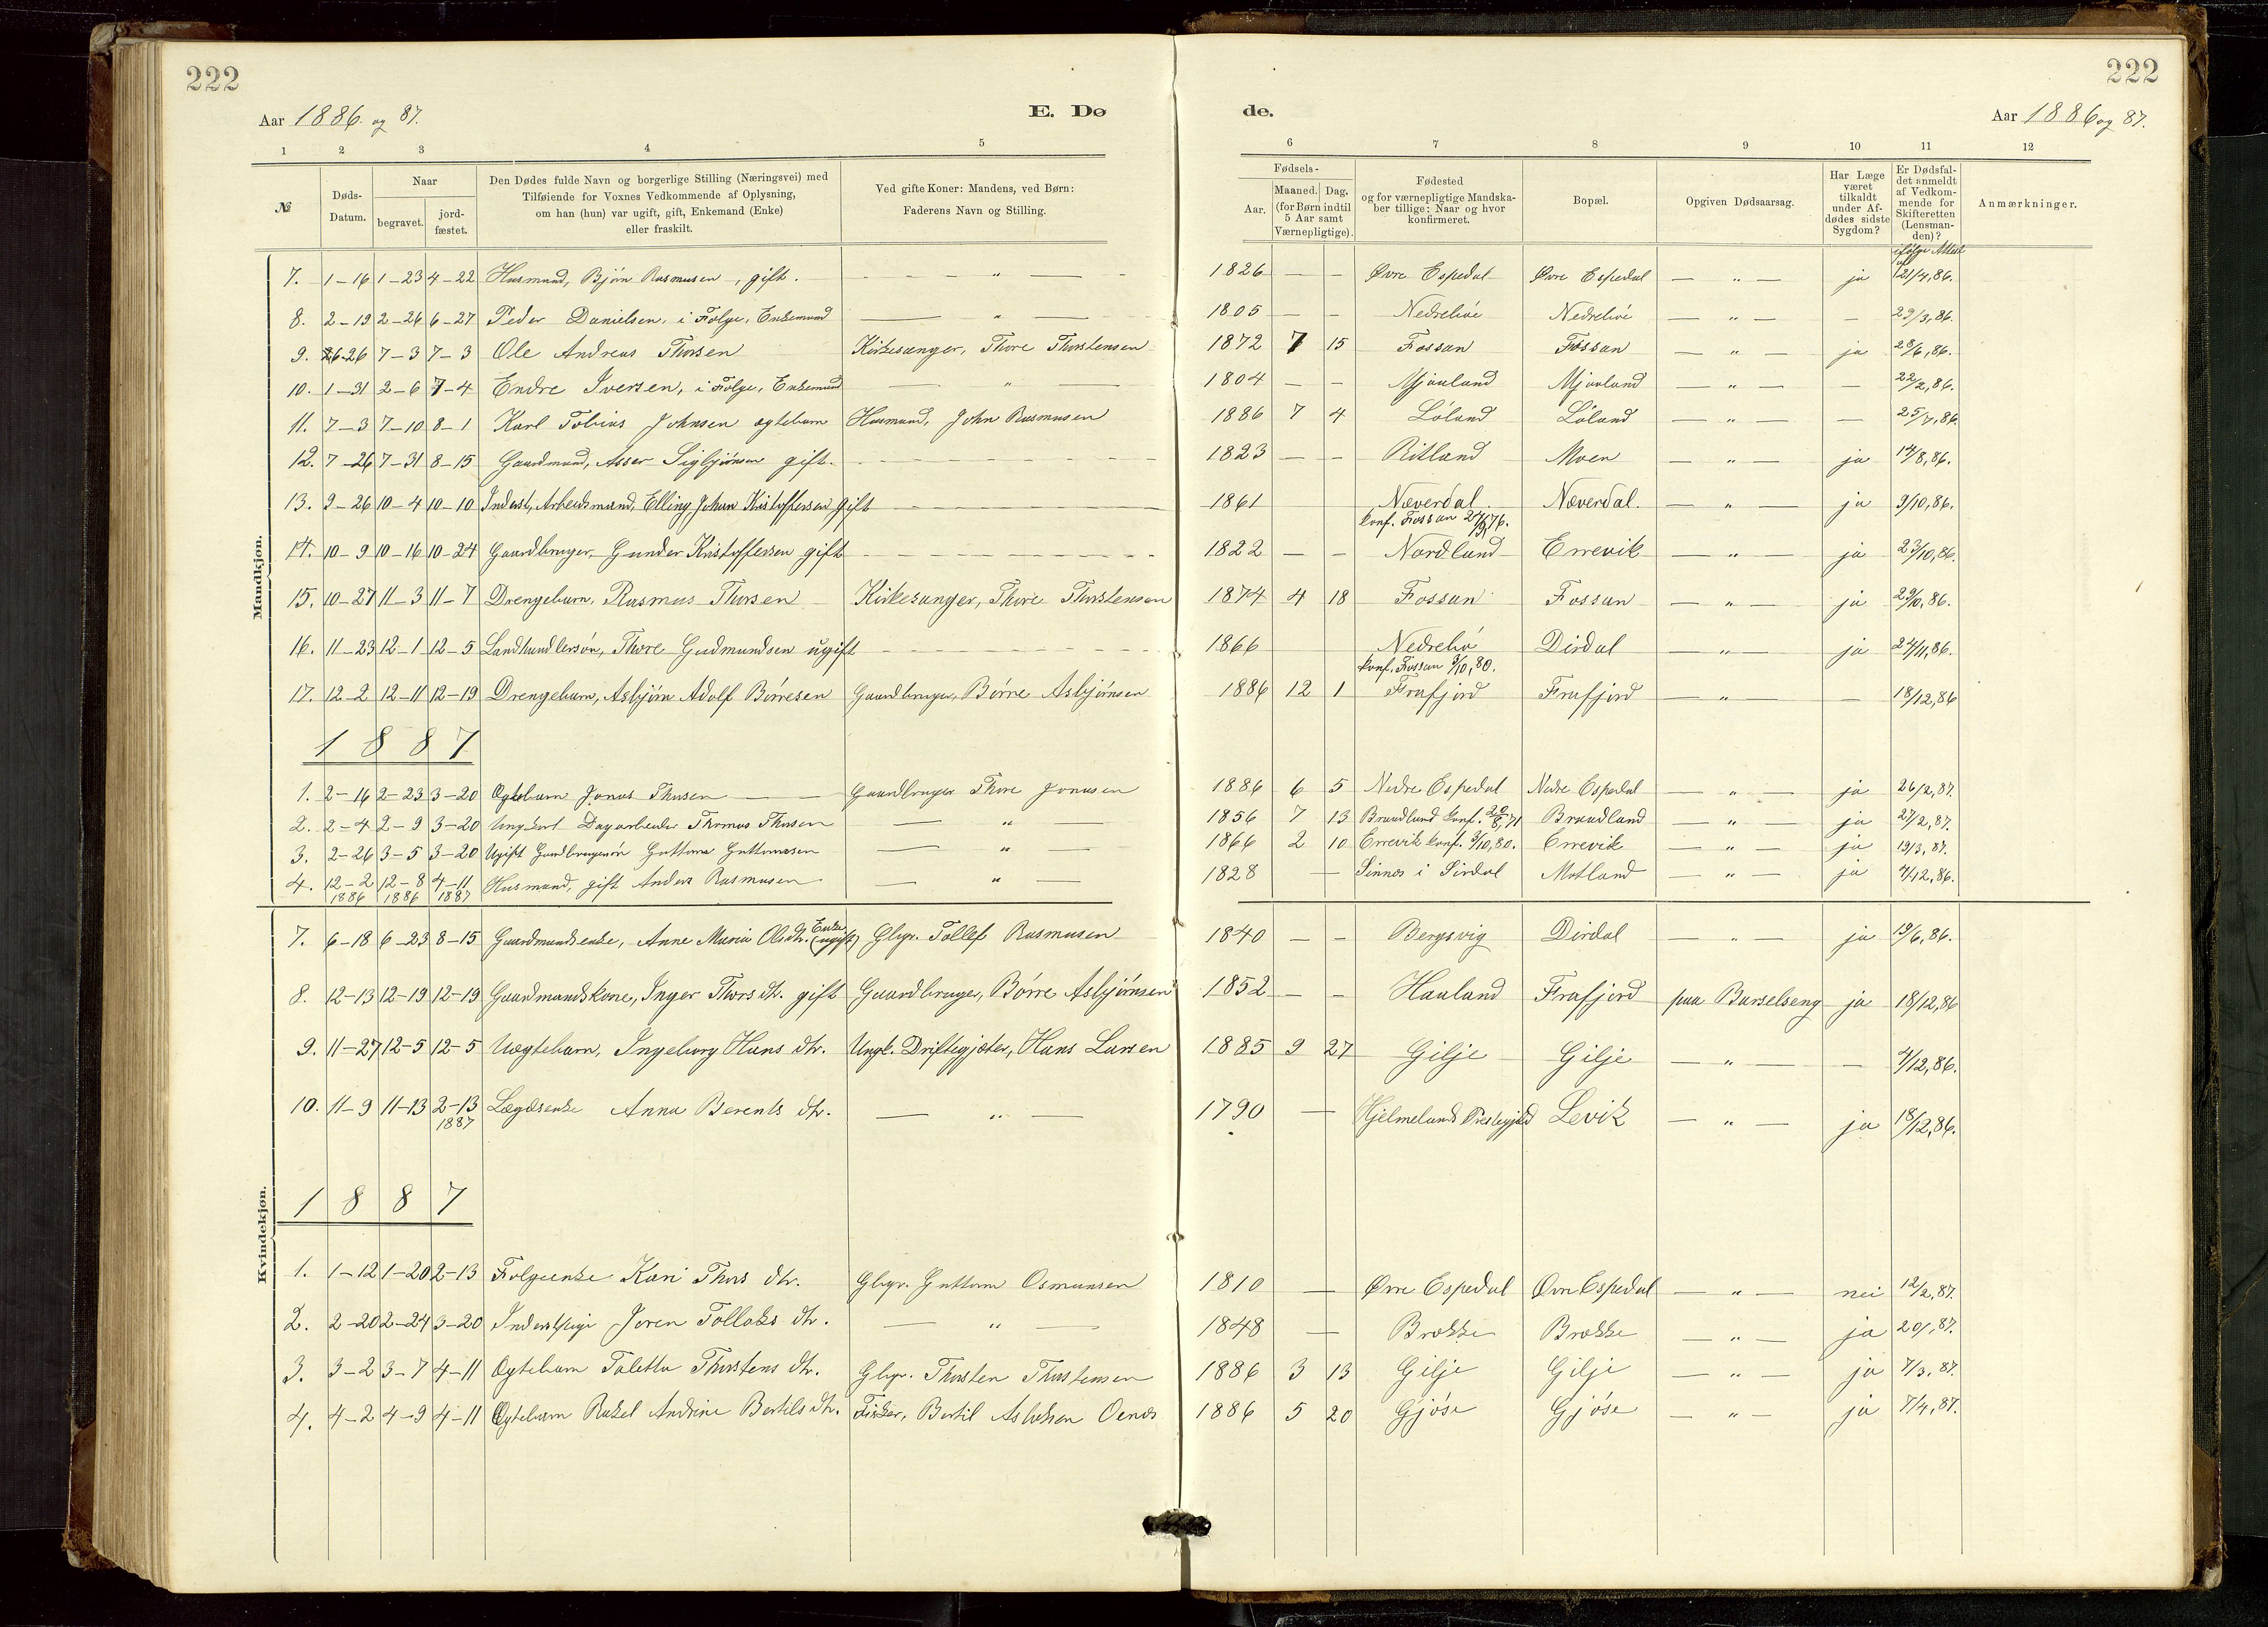 222
222
Aar 1886. og 87.
E. Dø
de.
Aar 1886 og 87.
1 2 3 4 5 6 7 8 9 10 11 12
№
Døds-Datum.
Naar
begravet.
jord-fæstet.
Den Dødes fulde Navn og borgerlige Stilling (Næringsvei) med
Tilføiende for Voxnes Vedkommende af Oplysning,
om han (hun) var ugift, gift, Enkemand (Enke)
eller fraskilt.
Ved gifte Koner: Mandens, ved Børn:
Faderens Navn og Stilling.
Fødsels-
Aar.
Maaned. Dag.
(for Børn indtil
5 Aar samt
Værnepligtige).
Fødested
og for værnepligtige Mandska-
ber tillige: Naar og hvor
konfirmeret.
Bopæl.
Opgiven Dødsaarsag.
Har Læge
været
tilkaldt
under Af-
dødes sidste
Sygdom?
Er Dødsfal-
det anmeldt
af Vedkom-
mende for
Skifteretten
(Lensman-
den)?
Anmærkninger.
Mandkjøn.
ifølge Attest
af
7. 1-16 1-23 4-22 Husmand, Bjørn Rasmusen, gift. - " - 1826 - - Øvre Espedal Øvre Espedal - " - ja 21/4, 86.
8. 2-19 2-26 6-27 Peder Danielsen, i Følge, Enkemand - " - 1805 - - Nedrebø Nedrebø - " - - 29/3, 86.
9. 6-26 7-3 7-3 Ole Andreas Thorsen Kirkesanger, Thore Thorstensen 1872 7 15 Fossan Fossan - " - ja 28/6, 86.
10. 1-31 2-6 7-4 Endre Iversen, i Følge, Enkemand - " - 1804 - - Mjaaland Mjaaland - " - - 22/2, 86.
11. 7-3 7-10 8-1 Karl Tobias Johnsen ægtebarn Husmand, John Rasmusen 1886 7 4 Løland Løland - " - - 25/7, 86.
12. 7-26 7-31 8-15 Gaardmand, Asser Sigbjørnsen gift. - 1823 - - Ritland Moen - " - ja 14/8, 86.
13. 9-26 10-4 10-10 Inderst, Arbeidsmand, Elling Johan Kristoffersen gift - 1861 Næverdal. Næverdal. - " - ja 9/10, 86.
konf. Fossan 76.
14. 10-9 10-16 10-24 Gaardbruger, Gunder Kristoffersen gift - 1822 - - Nordland Errevik - " - ja 23/10, 86.
15. 10-27 11-3 11-7 Drengebarn, Rasmus Thorsen Kirkesanger, Thore Thorstensen 1874 4 18 Fossan Fossan - " - ja 29/10, 86.
16. 11-23 12-1 12-5 Landhandlersøn, Thore Gudmundsen ugift - 1866 Nedrebø Dirdal - " - ja 24/11, 86.
konf. Fossan 3/10, 80.
17. 12-2 12-11 12-19 Drengebarn, Asbjørn Adolf Børresen Gaardbruger, Børre Asbjørnsen 1886 12 1 Frafjord Frafjord - " - - 18/12, 86
1887
1. 2-16 2-23 3-20 Ægtebarn Jonas Thorsen Gaardbruger Thore Jonasen 1886 6 5 Nedre Espedal Nedre Espedal - " - ja 26/2, 87.
2. 2-4 2-9 3-20 Ungkarl Dagarbeider Thomas Thorsen - " - 1856 7 13 Brandland konf. 20/8, 71 Brandland - " - ja 27/2, 87.
3. 2-26 3-5 3-20 Ugift Gaardbrugersøn Guttorm Guttormsen - " - 1866 2 10 Errevik konf. 3/10, 80. Errevik - " - ja 19/3, 87.
4. 12-2 12-8 4-11 Husmand, gift Anders Rasmusen - " - 1828 - Sinnes i Sirdal Motland - " - ja 4/12, 86.
1886 1886 1887
7. 6-18 6-23 8-15 Gaardmandsenke, Anne Maria Olsdtr. Enke (ugift) Gbgr. Tollef Rasmusen 1840 - - Bergsvig Dirdal - " - ja 19/6, 86.
8. 12-13 12-19 12-19 Gaardmandskone, Inger Thorsdtr. gift Gaardbruger, Børre Asbjørnsen 1852 - - Hauland Frafjord paa Barselseng ja 18/12, 86
9. 11-27 12-5 12-5 Uægtebarn, Ingeborg Hans dtr. Ungk. Driftegjæter, Hans Larsen 1885 9 27 Gilje Gilje - " - - 4/12, 86.
10. 11-9 11-13 2-13 Lægdsenke Anna Berents dtr. - " - 1790 - Hjelmelands Præstegjeld Levik - " - ja 18/12, 86.
1887
Kvindekjøn.
1887
1. 1-12 1-20 2-13 Følgeenke Kari Thors dtr. Gbgr. Guttorm Osmunsen 1810 - Øvre Espedal Øvre Espedal - " - nei 12/2, 87.
2. 2-20 2-24 3-20 Joren Tollaks dtr. - " - 1848 - Brekke Brekke - " - ja 20/, 87.
3. 3-2 3-7 4-11 Ægtebarn Taletta Thorstens dtr. Gbgr. Thorsten Thorstensen 1886 3 13 Gilje Gilje - " - ja 7/3, 87.
4. 4-2 4-9 4-11 Ægtebarn Rakel Andrine Bertils dtr. Fisker, Bertil Aslaksen Oenes 1886 5 20 Gjøse Gjøse - " - ja 7/4, 87.